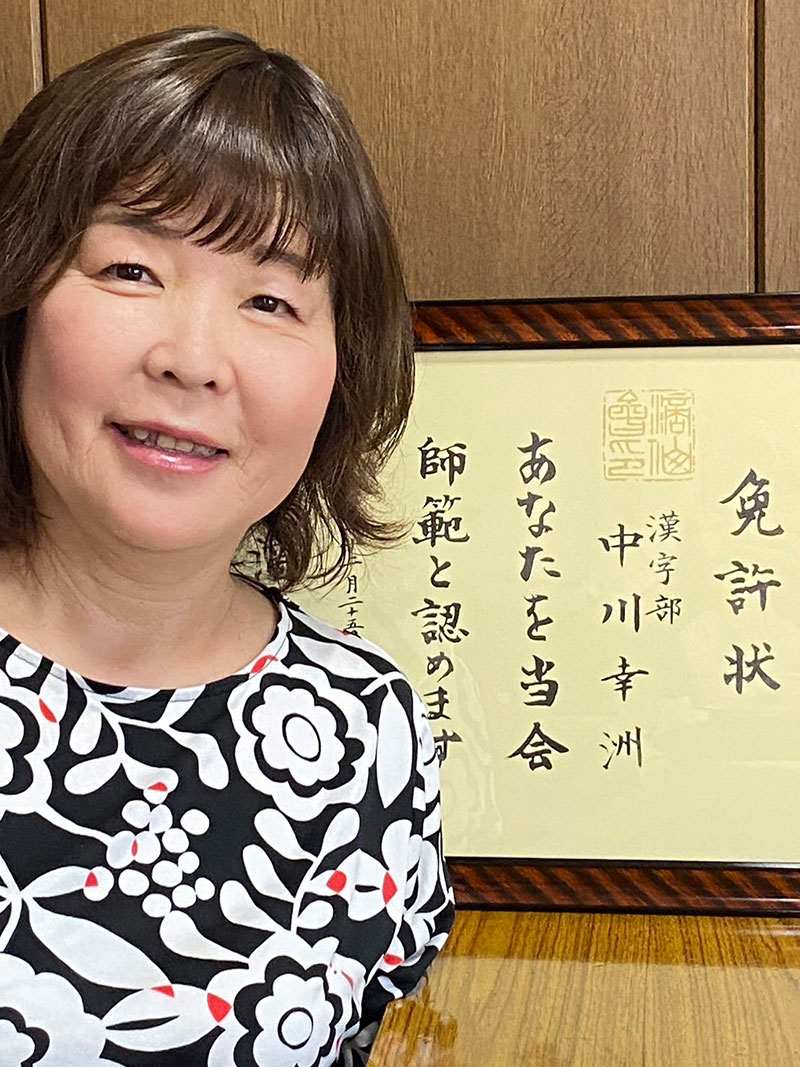 免許状
漢字部
中川幸洲
あなたを当会
師範と認めます
月二十五